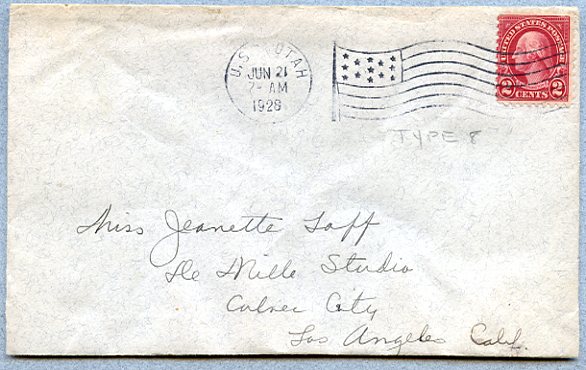 U.S.S. UTAH
JUN 21
7- AM
1928
UNITED STATES POSTAGE
2 CENTS 2
TYPE 8
Miss Jeanette Toff
De Mille Studio
Culver City
Los Angeles Calif.